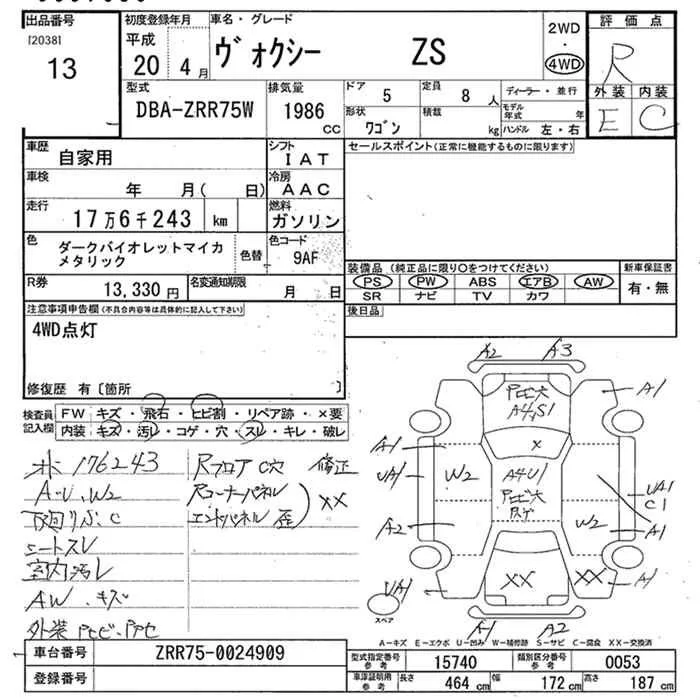 出品番号
[2038]
13
初度登録年月
平成
20 4月
車名・グレード
ヴォクシー ZS
2WD
・
4WD
評価点
R
外装 内装
E C
型式
DBA-ZRR75W
排気量
1986
CC
ドア
5
定員
8人
形状
ワゴン
積載
kg
ディーラー・並行
モデル年式 年
ハンドル 左・右
車歴
自家用
シフト
IAT
セールスポイント(正常に機能するものに限ります)
車検
年 月( 日)
冷房
AAC
走行
17万6千243 km
燃料
ガソリン
色
ダークバイオレットマイカ
メタリック
色替
色コード
9AF
装備品(純正品に限り○をつけてください)
PS PW ABS エアB AW
SR ナビ TV カワ
新車保証書
有・無
R券
13,330円
名変通知期限
月 日
後日品
注意事項申告欄(不具合内容等は具体的に記入して下さい)
4WD点灯
修復歴 有〔箇所 〕
検査員記入欄
FW キズ・飛石・ヒビ割・リペア跡・×要
内装 キズ・汚レ・コゲ・穴・スレ・キレ・破レ
176243
A・U、W2
シートスレ
室内汚レ
AW、キズ
Rフロア C穴 修正
Rコーナーパネル
エンドパネル 歪) XX
A2 A3
A1
A4S1
X
A1
UA1
W2
A4U1
UA1
C1
A2
W2
A1
UA1
XX
XX
A1
スペア
A1 A2
A−キズ E−エクボ U−凹み W−補修跡 S−サビ C−腐食 XX−交換済
車台番号
ZRR75-0024909
登録番号
型式指定番号
参考
15740
類別区分番号
参考
0053
車庫証明用
参考
長さ
464 cm
幅
172 cm
高さ
187 cm